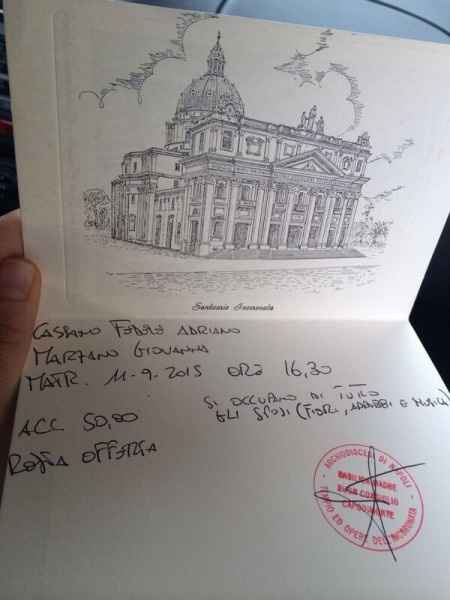 Santuario Incoronata
CASSANO FEDELE ADRIANO
MARZANO GIOVANNA
MATR. 11-9-2015 ORE 16,30
SI OCCUPANO DI TUTTO
GLI SPOSI (FIORI, ADDOBBI E MUSICA)
ACC 50,00
OFFERTA
ARCHIDIOCESI DI NAPOLI
BASILICA MADRE
BUON CONSIGLIO
CAPODIMONTE
TEMPIO ED OPERE DELL'INCORONATA